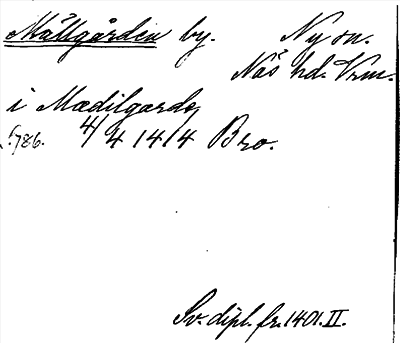 Mällgården by. Ny sn.
Näs hd. Vrm.
i Mædilgarde
s. 786. 4/4 1414 Bro.
Sv. dipl. fr. 1401. II.